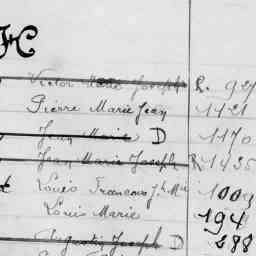 K
Victor Marie Joseph R. 927
Pierre Marie Jean 1421
Jean Marie D 1170
Jean Marie Joseph R 1435
Louis Francois Jh Mie 1003
Louis Marie 194
Augustin Joseph D 288